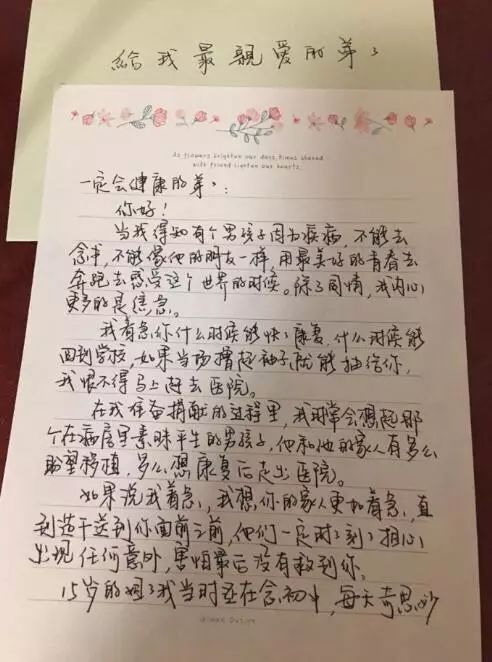 給我最親爱的弟々
As flowers brighten our days, times shared
with friend lighten our hearts.
一定会健康的弟々：
你好！
当我得知有个男孩子因为疾病，不能去
念书，不能像他的朋友一样，用最美好的青春去
奔跑去感受这个世界的时候。除了同情，我内心
更多的是焦急。
我着急你什么时候能快々康复，什么时候能
回到学校，如果当场撸起袖子就能抽给你，
我恨不得马上赶去医院。
在我准备捐献的过程里，我时常会想起那
个在病房里素昧平生的男孩子，他和他的家人有多么
盼望移植，多么想康复后走出医院。
如果说我着急，我想，你的家人更加着急，直
到造干送到你面前之前，他们一定时々刻々担心
出现任何意外，害怕最后没有救到你。
15岁的姐々我当时还在念初中，每天奇思妙